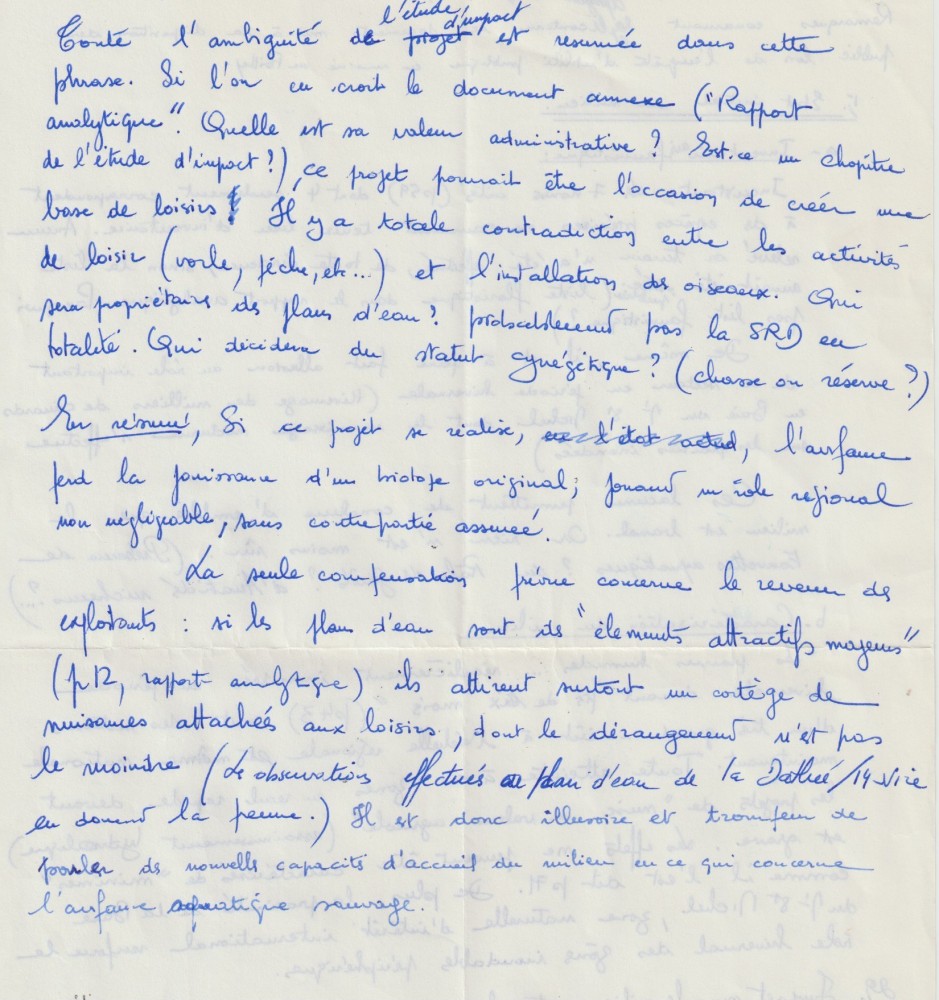 Toute l'ambiguité de l'étude d'impact est resumée dans cette
phrase. Si l'on en croit le document annexe ("Rapport
analytique". Quelle est sa valeur administrative ? Est.ce un chapitre
de l'étude d'impact ?) ce projet pourrait être l'occasion de créer une
base de loisirs ! Il y a totale contradiction entre les activités
de loisir (voile, pêche, etc...) et l'installation des oiseaux. Qui
sera propriétaire des plans d'eau ? probablement pas la SRD en
totalité. Qui décidera du statut cynégétique ? (chasse ou réserve ?)
En résumé, Si ce projet se réalise, en l'état actuel, l'avifaune
perd la jouissance d'un biotope original, jouant un rôle régional
non négligeable, sans contrepartie assurée.
La seule compensation prévue concerne le revenu des
exploitants : si les plans d'eau sont des "élements attractifs majeurs"
(p 12, rapport analytique) ils attirent surtout un cortège de
nuisances attachées aux loisirs, dont le dérangement n'est pas
le moindre (Les observations effectués au plan d'eau de la Dathée/14-Vire
en donnent la preuve.) Il est donc illusoire et trompeur de
parler des nouvelles capacités d'accueil du milieu en ce qui concerne
l'avifaune aquatique sauvage.